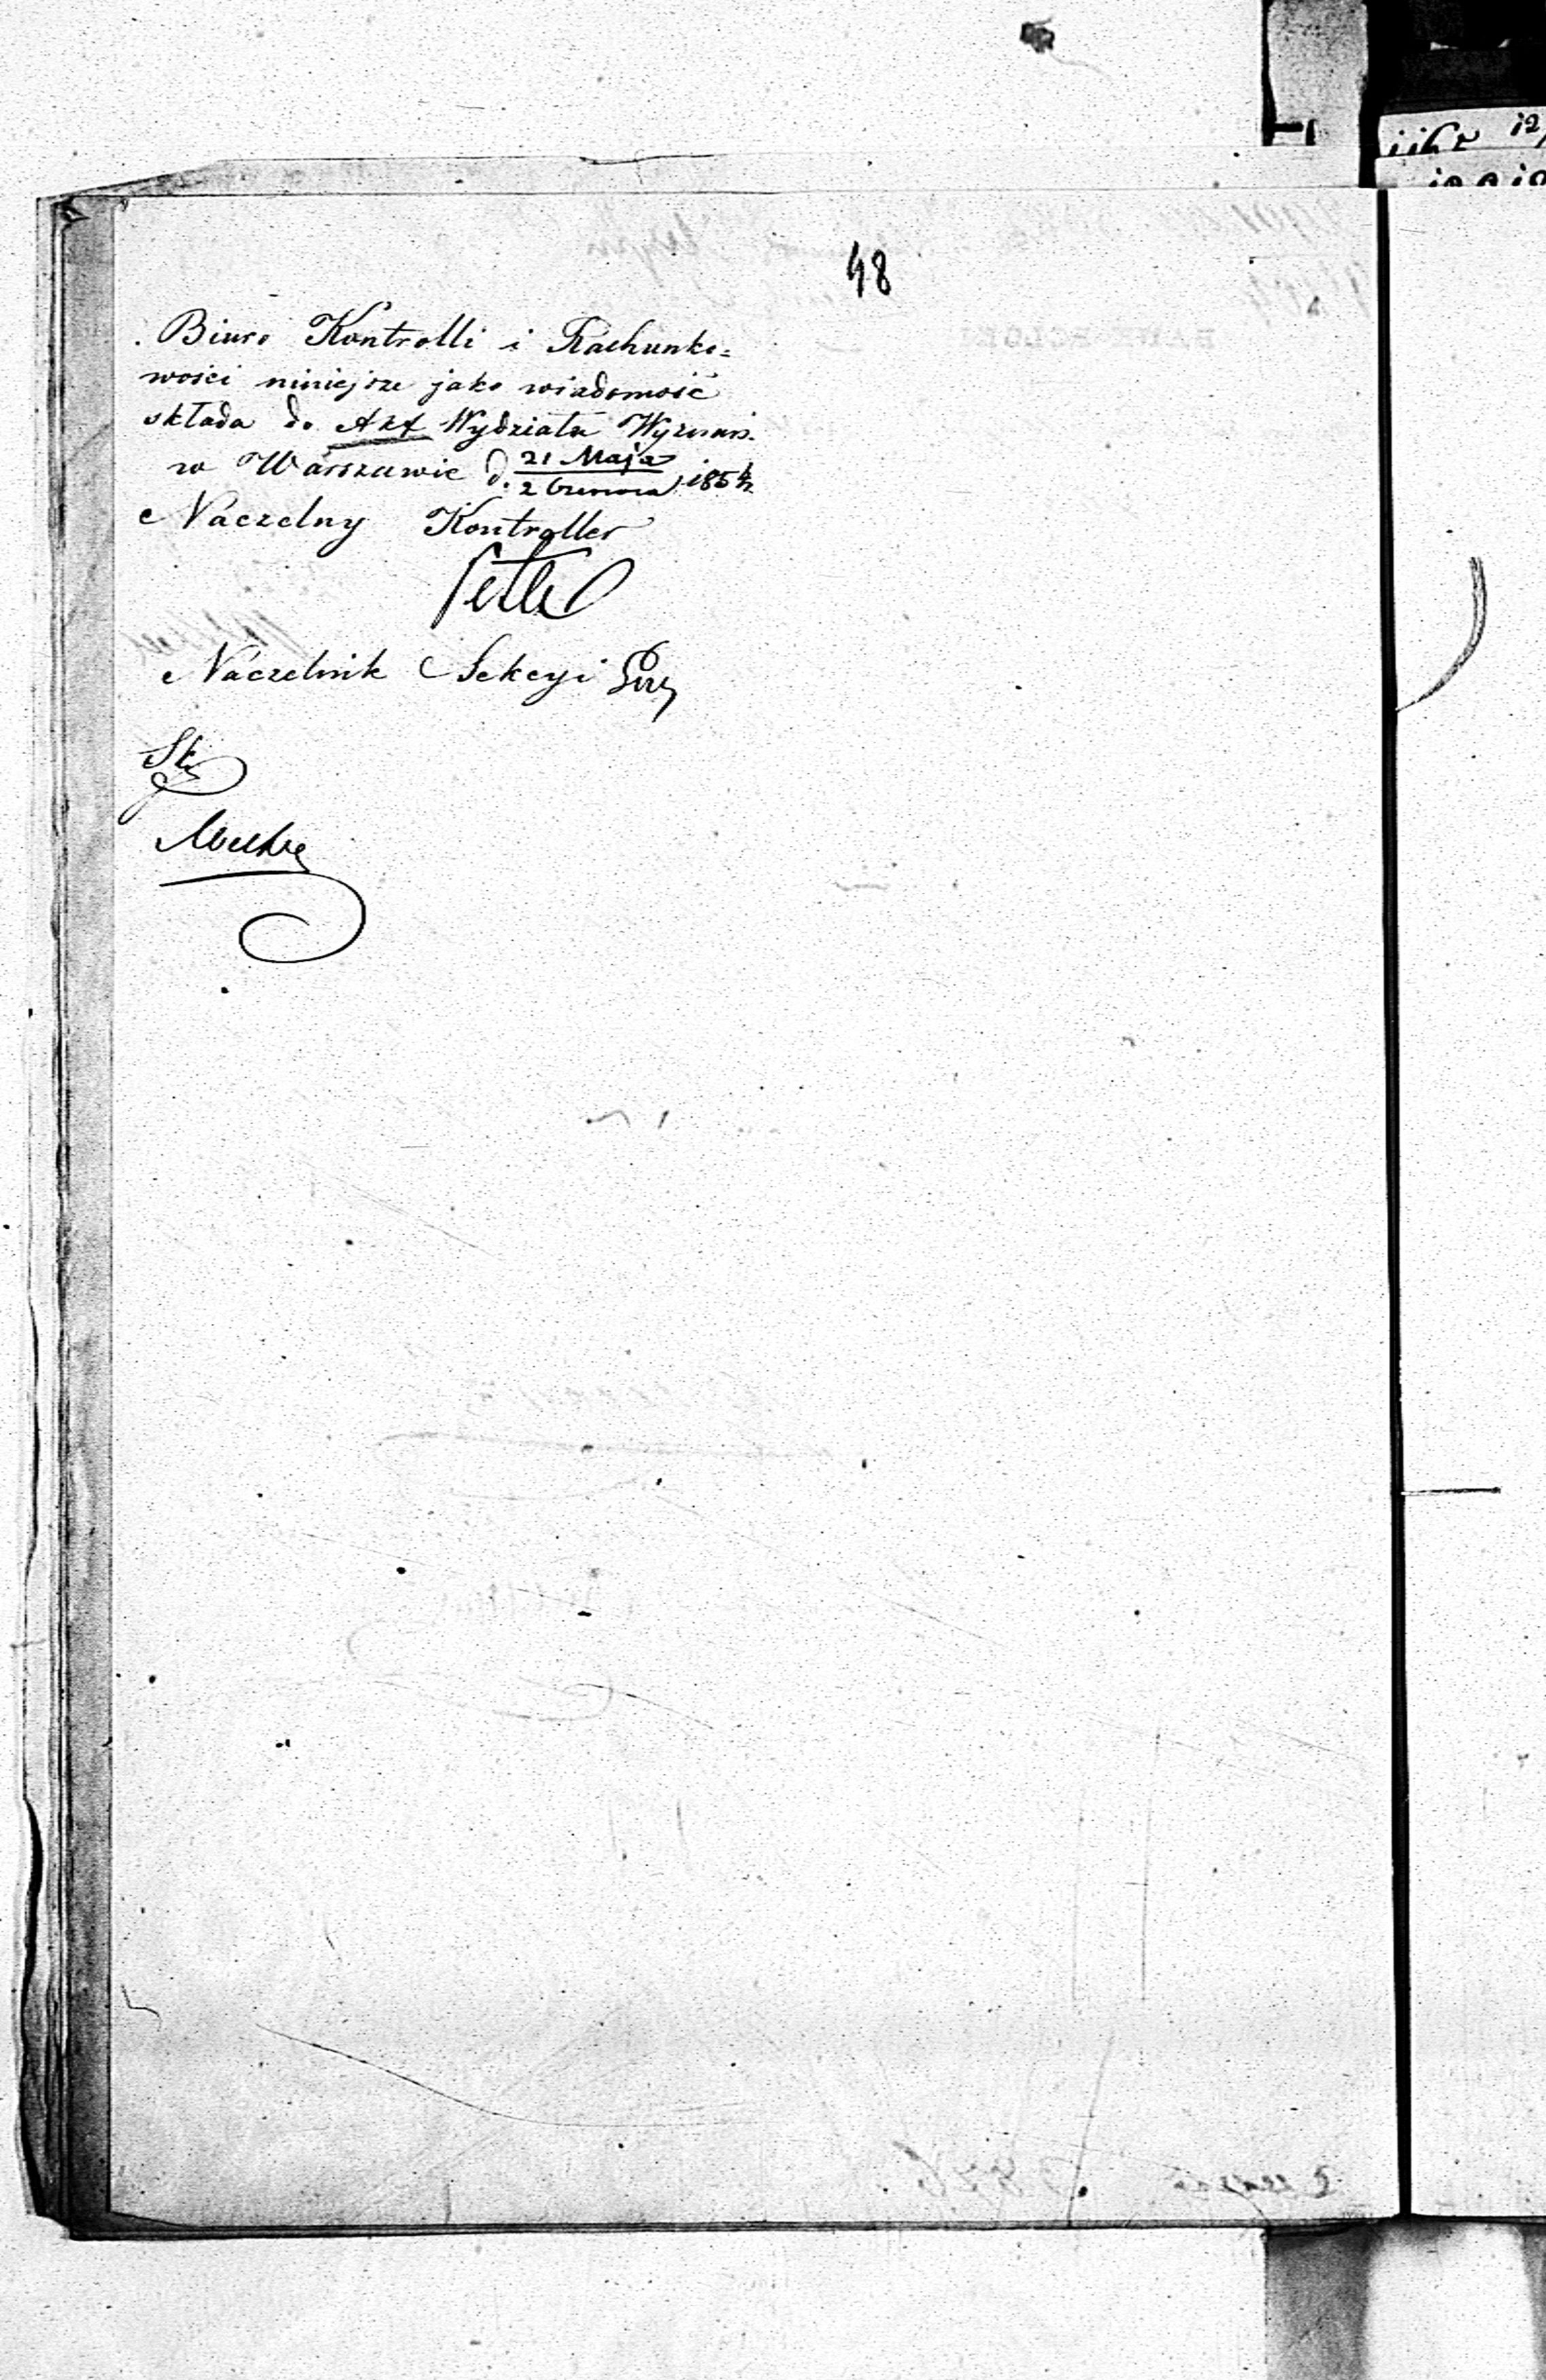 48
Biuro Kontrolli i Rachunko=
wości niniejsze jako wiadomość
składa do Akt Wydziału Wyznań.
w Warszawie d. 21 Maja
2 Czerwca 1854 r.
Naczelny Kontroller
Naczelnik Sekcyi